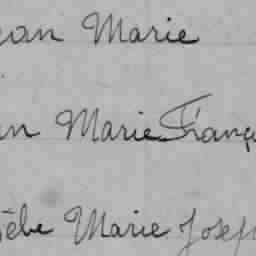 ean Marie
n Marie Franç
èbe Marie Josep